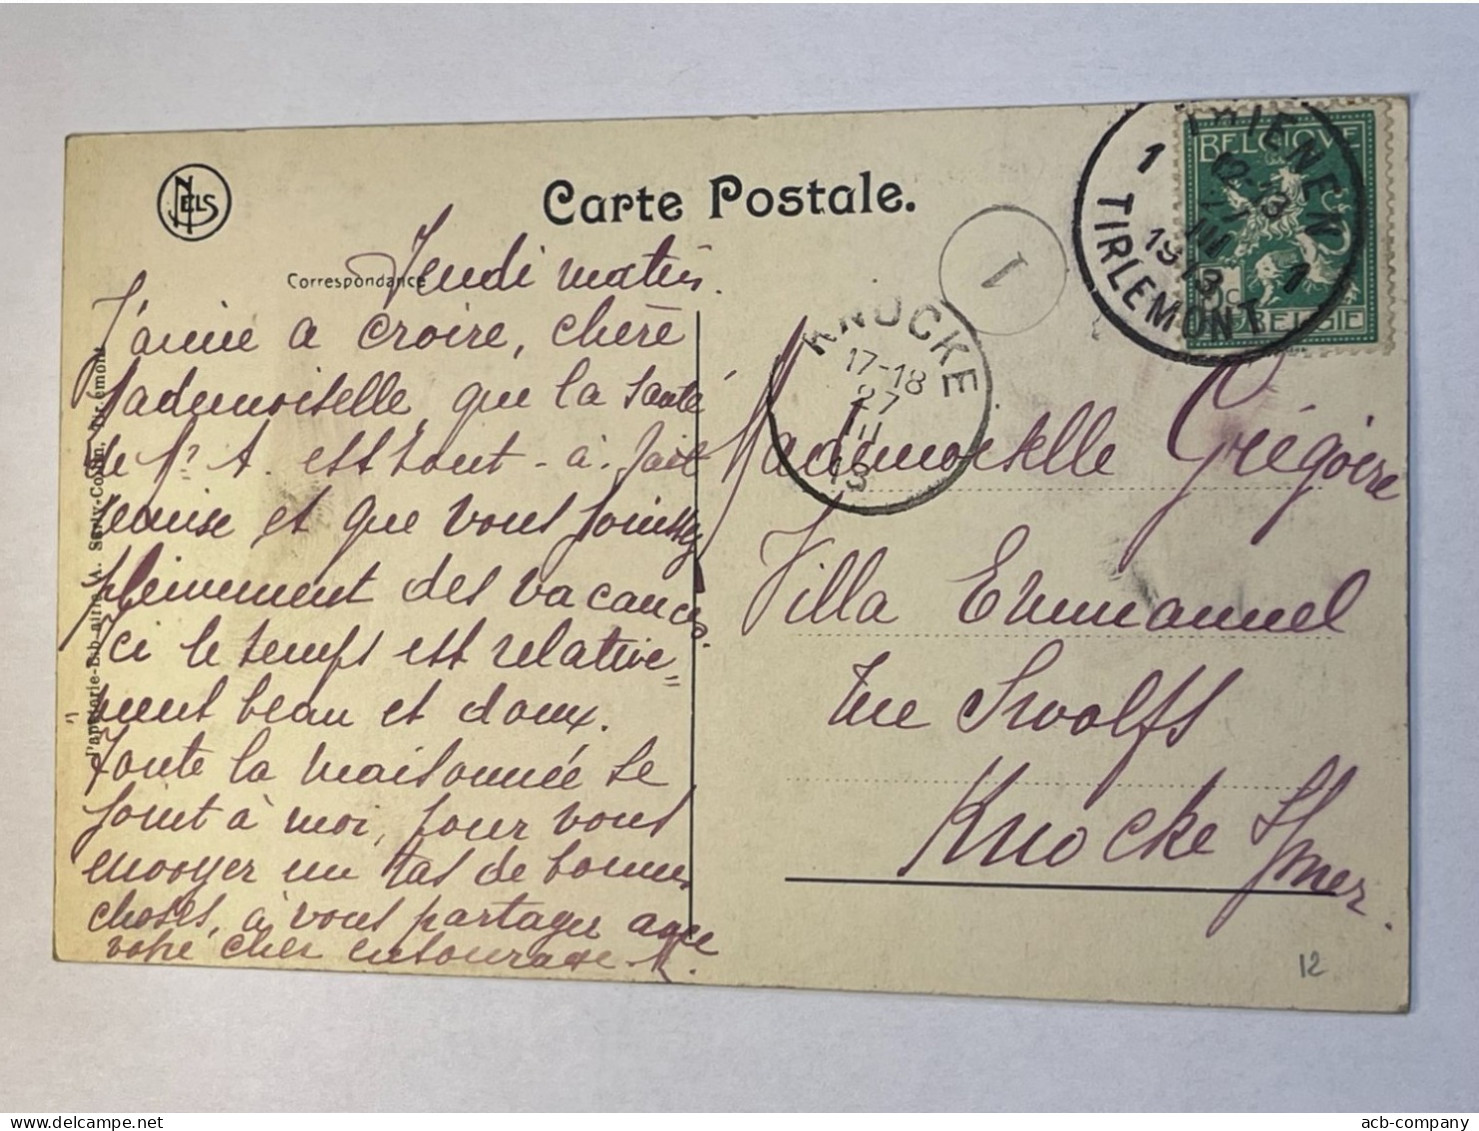 NELS
Carte Postale.
Correspondance
Jeudi matin.
J'aime a croire, chère
Mademoiselle que la santé
de Mr A. est tout-à-fait
remise et que vous jouissez
pleinement des vacances.
Ici le temps est relative=
ment beau et doux.
Toute la maisonnée se
joint à moi, pour vous
envoyer un tas de bonnes
choses, à vous partager avec
votre cher entourage
Papeterie-Librairie A. Tirlemont
1
KNOCKE
17-18
27
III
13
THIENEN
1
12-13
27
III
1913
1
TIRLEMONT
BELGIQUE
5c
BELGIË
Mademoiselle Grégoire
Villa Emmanuel
rue Swolfs
Knocke s/mer.
12
acb-company